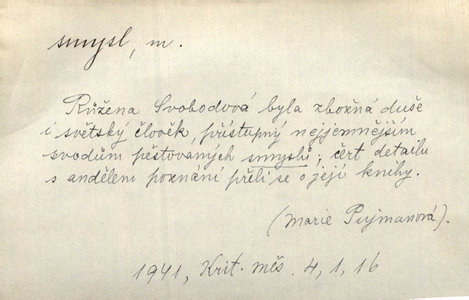 smysl, m.
Růžena Svobodová byla zbožná duše
i světský člověk, přístupný nejjemnějším
svodům pěstovaných smyslů; čert detailu
s andělem poznání přeli se o její knihy.
(Marie Pujmanová).
1941, Krit. měs. 4, 1, 16